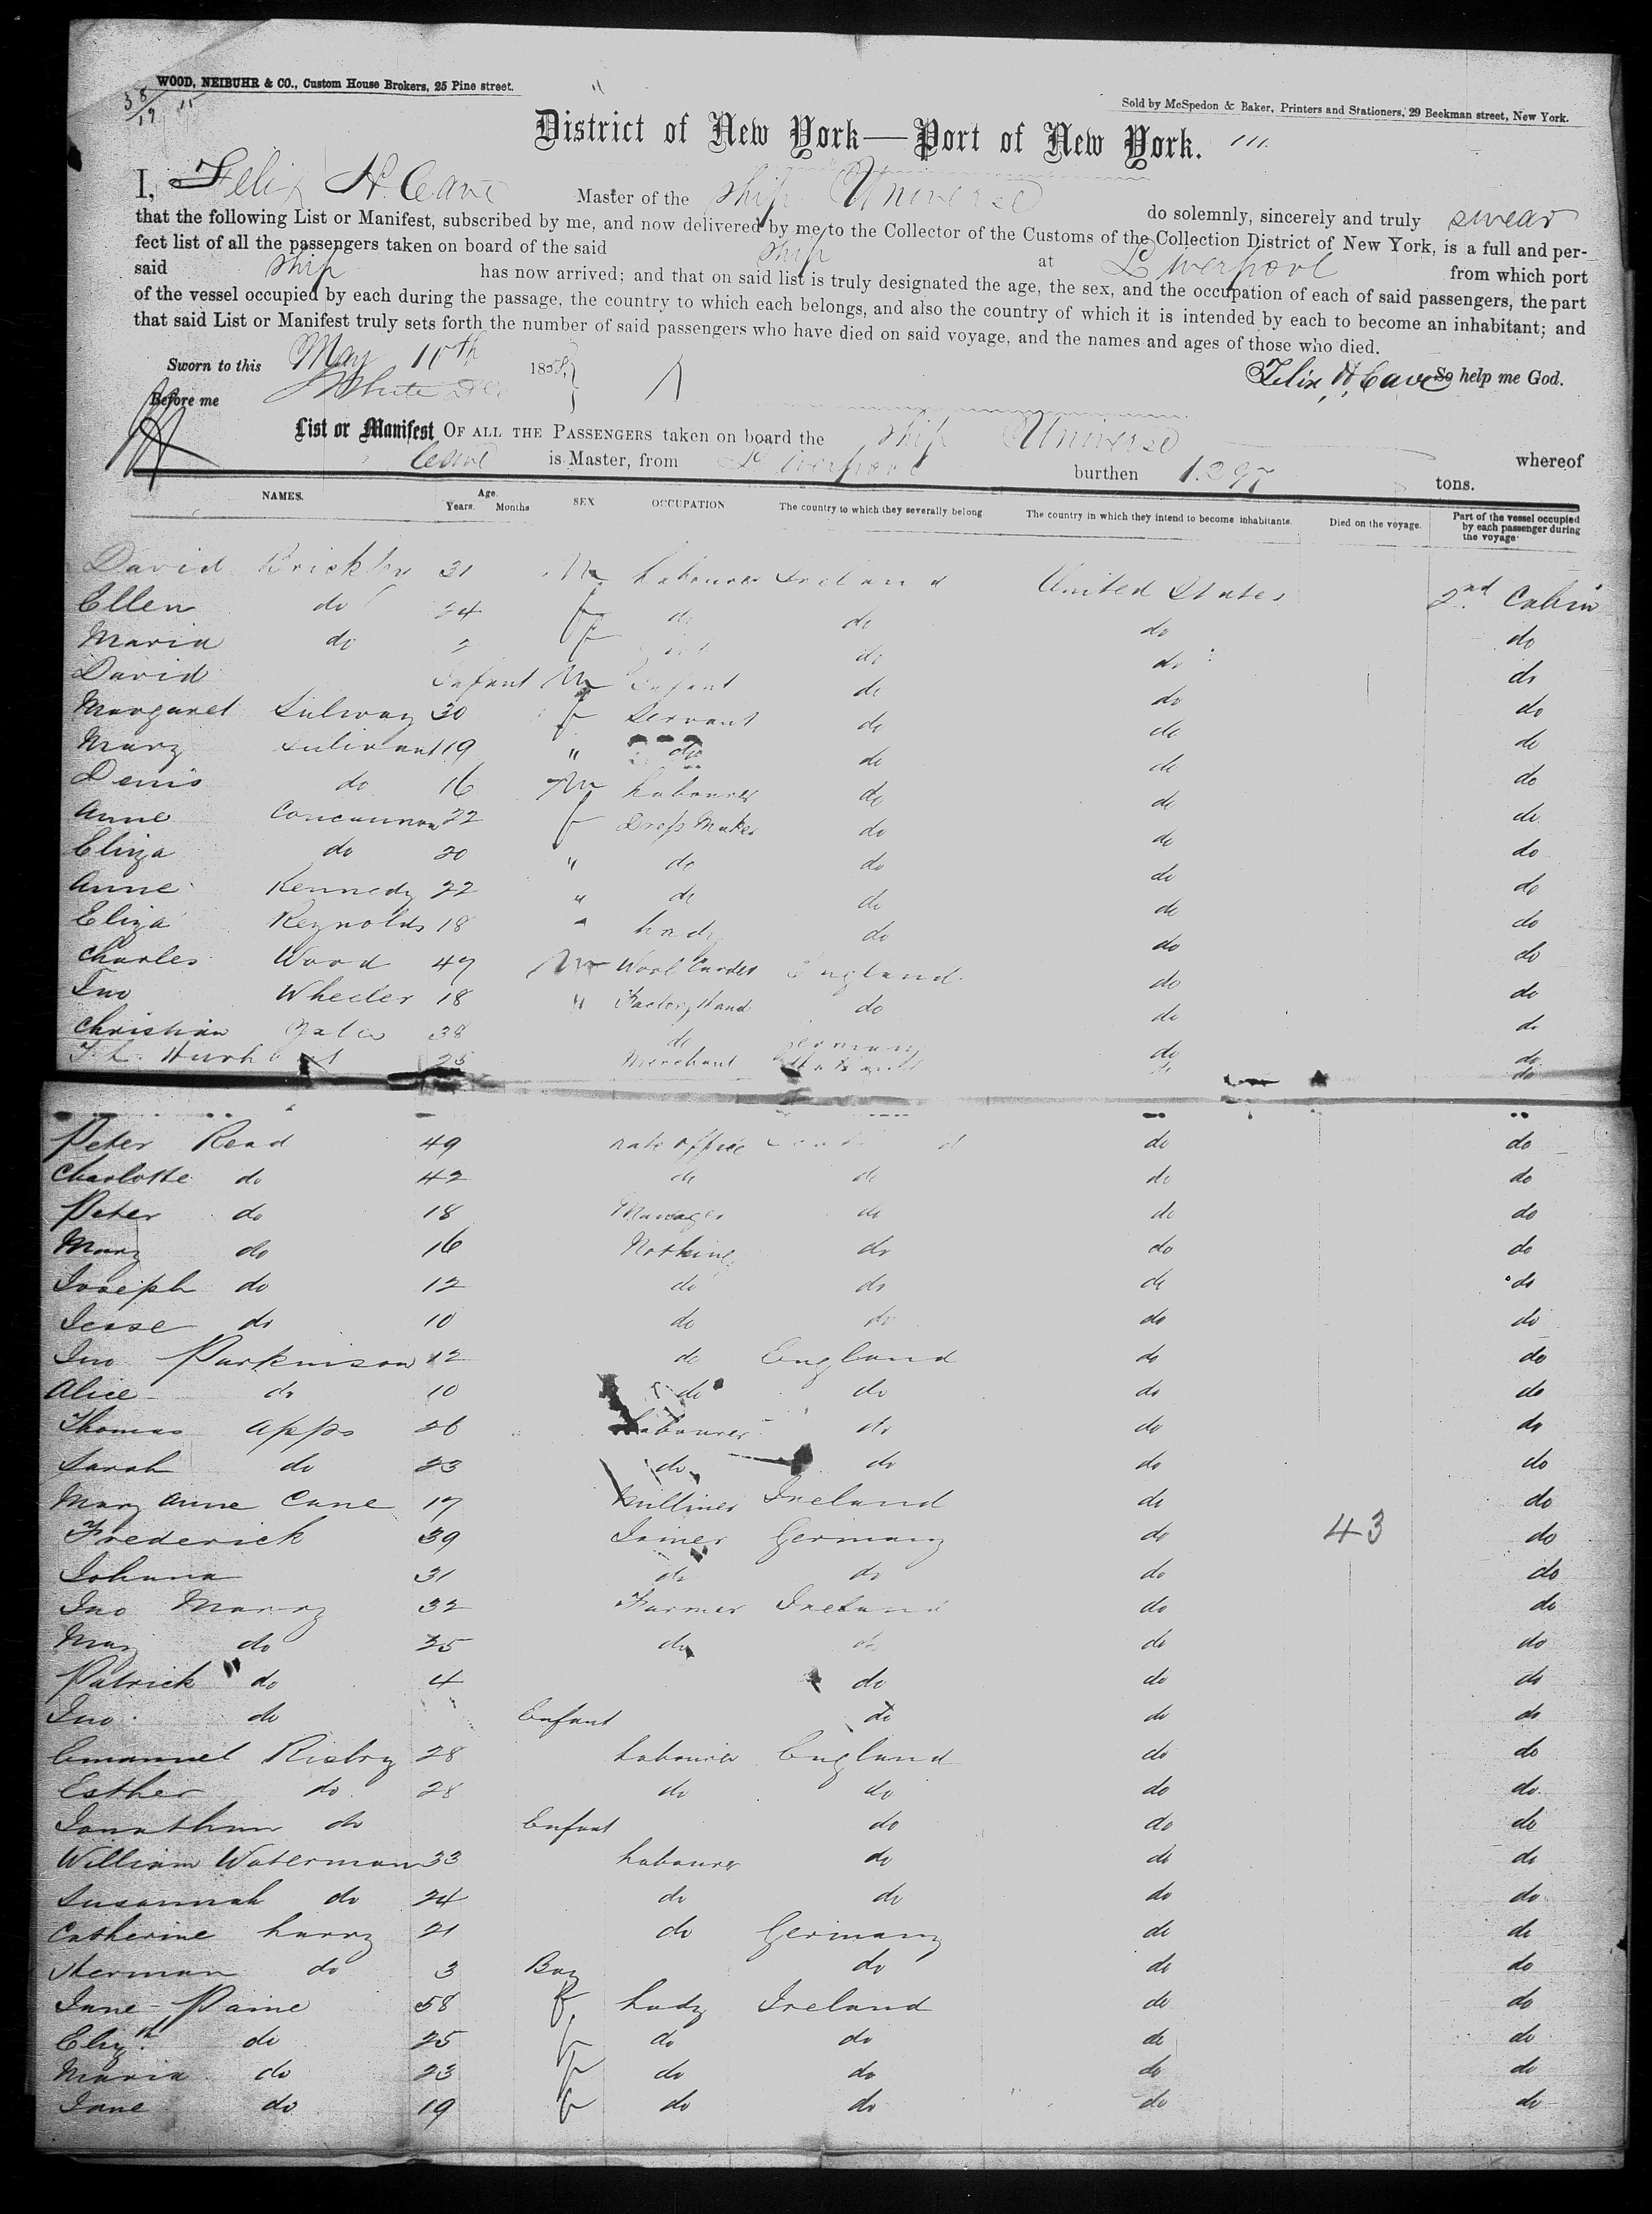 WOOD, NEIBUHR & CO., Custom House Brokers, 25 Pine street.
Sold by McSpedon & Baker, Printers and Stationers, 29 Beekman street, New York.
38/19
District of New York—Port of New York. 111.
I, Felix H. Cave Master of the ship Universe do solemnly, sincerely and truly swear
that the following List or Manifest, subscribed by me, and now delivered by me to the Collector of the Customs of the Collection District of New York, is a full and per-
fect list of all the passengers taken on board of the said ship at Liverpool from which port
said ship has now arrived; and that on said list is truly designated the age, the sex, and the occupation of each of said passengers, the part
of the vessel occupied by each during the passage, the country to which each belongs, and also the country of which it is intended by each to become an inhabitant; and
that said List or Manifest truly sets forth the number of said passengers who have died on said voyage, and the names and ages of those who died.
Sworn to this May 1858, Felix H Cave So help me God.
Before me White
List or Manifest OF ALL THE PASSENGERS taken on board the ship Universe whereof
Cave is Master, from Liverpool burthen 1.297 tons.
NAMES. Age. Years. Months SEX OCCUPATION The country to which they severally belong The country in which they intend to become inhabitants. Died on the voyage. Part of the vessel occupied by each passenger during the voyage
David Brickley 31 M Labourer Ireland United States 2nd Cabin
Ellen do 24 f do do do do
Maria do 2 f do do do
David Infant M Infant do do do
Margaret Sulway 30 f Servant do do do
Mary Sulivant 19 " do do do do
Denis do 16 M Labourer do do do
Anne Concannon 22 f Dress Maker do do do
Eliza do 20 " do do do do
Anne Kennedy 22 " do do do do
Eliza Reynolds 18 " Lady do do do
Charles Wood 47 M Wool Carder England do do
Jno Wheeler 18 " Factory Hand do do do
Christian Yates 38 do Germany do do
25 Merchant do do
Peter Read 49 do do
Charlotte do 42 do do do do
Peter do 18 Manager do do do
Mary do 16 Nothing do do do
Joseph do 12 do do do do
Jesse do 10 do do do do
Jno Parkinson 12 do England do do
Alice do 10 do do do do
Thomas Apps 26 Labourer do do do
Sarah do 23 do do do do
Mary Anne Cane 17 Milliner Ireland do do
Frederick 39 Joiner Germany do 43 do
Johana 31 do do do do
Jno Marry 32 Farmer Ireland do do
May do 25 do do do do
Patrick do 4 do do do
Jno do Enfant do do do
Emanuel Risbry 28 Labourer England do do
Esther do 28 do do do do
Jonathan do Enfant do do do
William Waterman 33 Labourer do do do
Susannah do 24 do do do do
Catherine Larry 21 do Germany do do
Herman do 3 Boy do do do
Jane Paine 58 f Lady Ireland do do
Elizth do 25 f do do do do
Maria do 23 f do do do do
Jane do 19 f do do do do